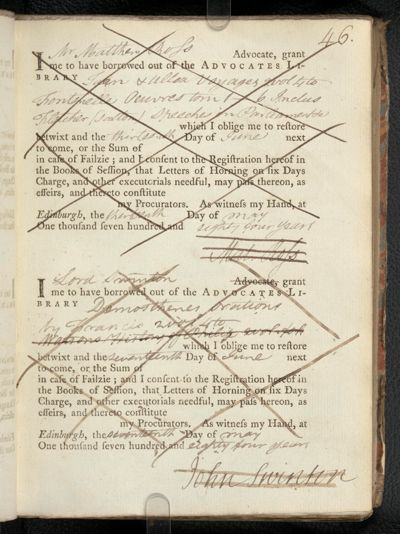 46.
I Mr Matthew Ross Advocate, grant
me to have borrowed out of the ADVOCATES LI-
BRARY Juan & Ulloa Voyages vol 4to
Fontenelle Oeuvres tom 1 - 6 Inclus
Fletcher Speeches in Parliament
which I oblige me to restore
betwixt and the thirteenth Day of June next
to come, or the Sum of
in case of Failzie; and I consent to the Registration hereof in
the Books of Session, that Letters of Horning on six Days
Charge, and other executorials needful, may pass thereon, as
effeirs, and thereto constitute
my Procurators. As witness my Hand, at
Edinburgh, the thirteenth Day of may
One thousand seven hundred and eighty four years
Matt. Ross
I Lord Swinton Advocate, grant
me to have borrowed out of the ADVOCATES LI-
BRARY Demosthenes orations
by Francis 2 vol
Watsons History of
which I oblige me to restore
betwixt and the seventeenth Day of June next
to come, or the Sum of
in case of Failzie; and I consent to the Registration hereof in
the Books of Session, that Letters of Horning on six Days
Charge, and other executorials needful, may pass hereon, as
effeirs, and thereto constitute
my Procurators. As witness my Hand, at
Edinburgh, the seventeenth Day of may
One thousand seven hundred and eighty four years
John Swinton